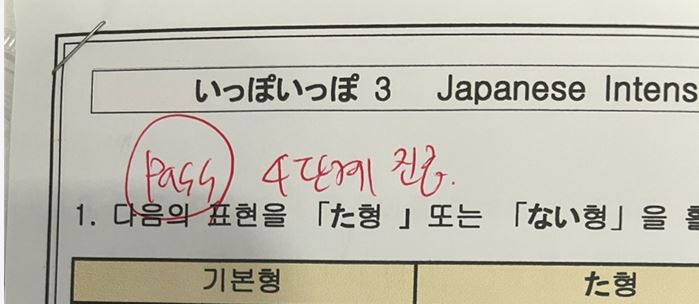 いっぽいっぽ 3 Japanese Intens
Pass 4단계 진급.
1. 다음의 표현을 「た형 」또는 「ない형」을 활
기본형 た형